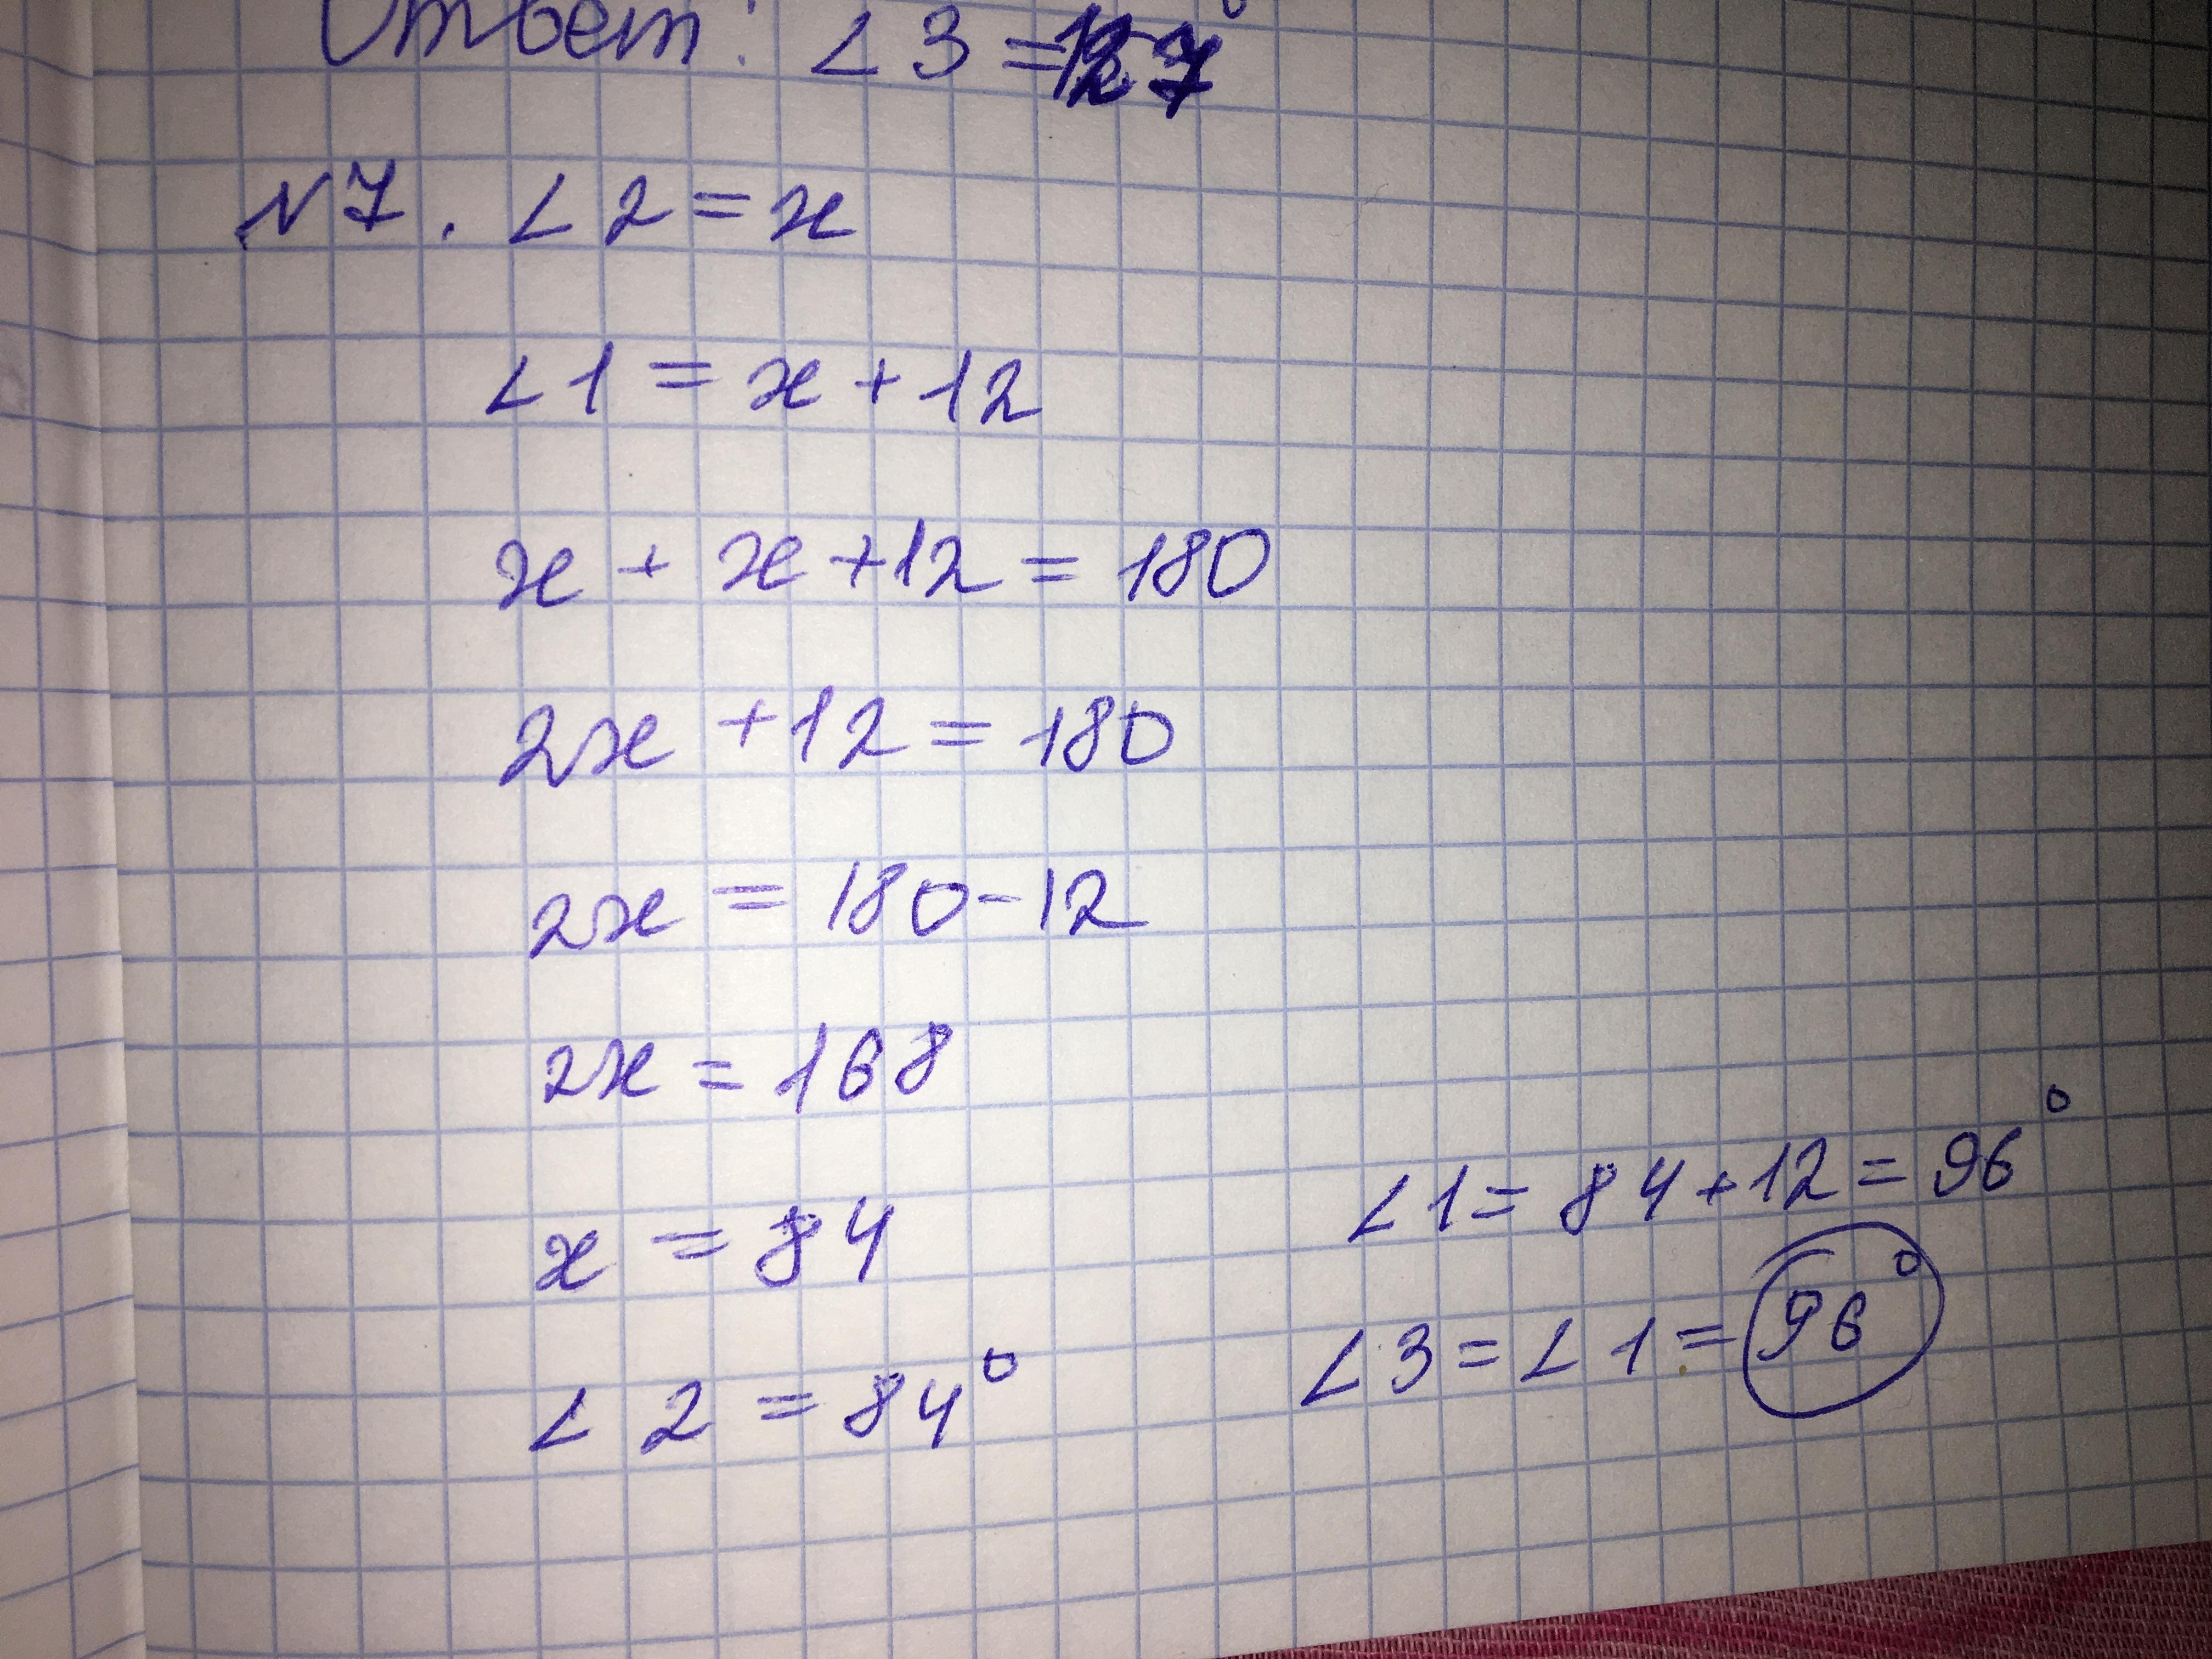 Ответ: ∠3 = 127°
N7. ∠2 = x
∠1 = x + 12
x + x + 12 = 180
2x + 12 = 180
2x = 180 - 12
2x = 168
x = 84
∠2 = 84°
∠1 = 84 + 12 = 96°
∠3 = ∠1 = 96°